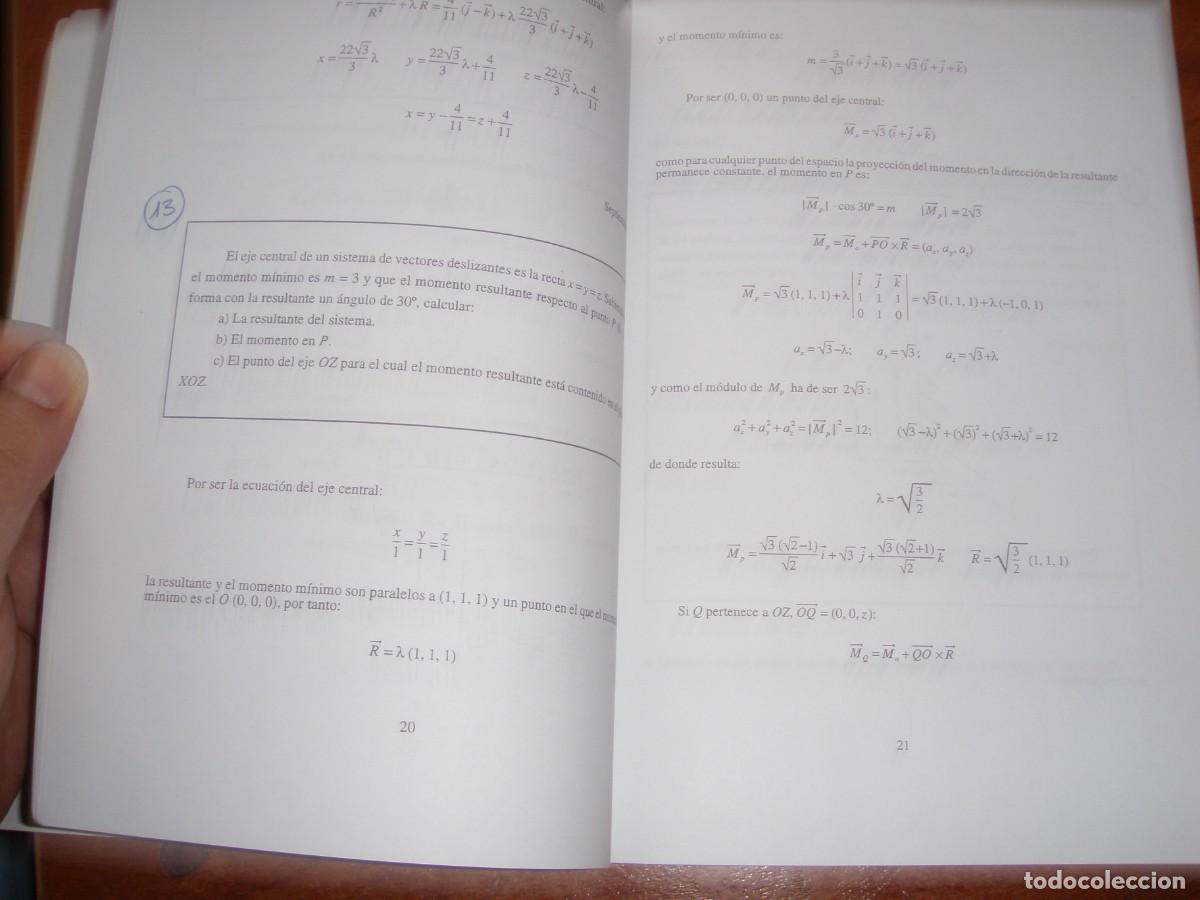 r = ——— / R² + λ R = 4/11 (j⃗ – k⃗) + λ 22√3/3 (i⃗ + j⃗ + k⃗)
x = 22√3/3 λ y = 22√3/3 λ + 4/11 z = 22√3/3 λ – 4/11
x = y – 4/11 = z + 4/11
13
El eje central de un sistema de vectores deslizantes es la recta x = y = z.
el momento mínimo es m = 3 y que el momento resultante respecto al punto P
forma con la resultante un ángulo de 30º, calcular:
a) La resultante del sistema.
b) El momento en P.
c) El punto del eje OZ para el cual el momento resultante está contenido en
XOZ.
Por ser la ecuación del eje central:
x/1 = y/1 = z/1
la resultante y el momento mínimo son paralelos a (1, 1, 1) y un punto en el que el
mínimo es el O (0, 0, 0), por tanto:
R⃗ = λ (1, 1, 1)
20
y el momento mínimo es:
m = 3/√3 (i⃗ + j⃗ + k⃗) = √3 (i⃗ + j⃗ + k⃗)
Por ser (0, 0, 0) un punto del eje central:
M⃗ₒ = √3 (i⃗ + j⃗ + k⃗)
como para cualquier punto del espacio la proyección del momento en la dirección de la resultante
permanece constante, el momento en P es:
|M⃗ₚ| · cos 30º = m |M⃗ₚ| = 2√3
M⃗ₚ = M⃗ₒ + PO⃗ × R⃗ = (aₓ, a_y, a_z)
M⃗ₚ = √3 (1, 1, 1) + λ | i⃗ j⃗ k⃗ ; 1 1 1 ; 0 1 0 | = √3 (1, 1, 1) + λ (–1, 0, 1)
aₓ = √3 – λ; a_y = √3; a_z = √3 + λ
y como el módulo de Mₚ ha de ser 2√3 :
aₓ² + a_y² + a_z² = |M⃗ₚ|² = 12; (√3 – λ)² + (√3)² + (√3 + λ)² = 12
de donde resulta:
λ = √(3/2)
M⃗ₚ = √3 (√2 – 1)/√2 i⃗ + √3 j⃗ + √3 (√2 + 1)/√2 k⃗ R⃗ = √(3/2) (1, 1, 1)
Si Q pertenece a OZ, OQ⃗ = (0, 0, z):
M⃗_Q = M⃗ₒ + QO⃗ × R⃗
21
todocoleccion